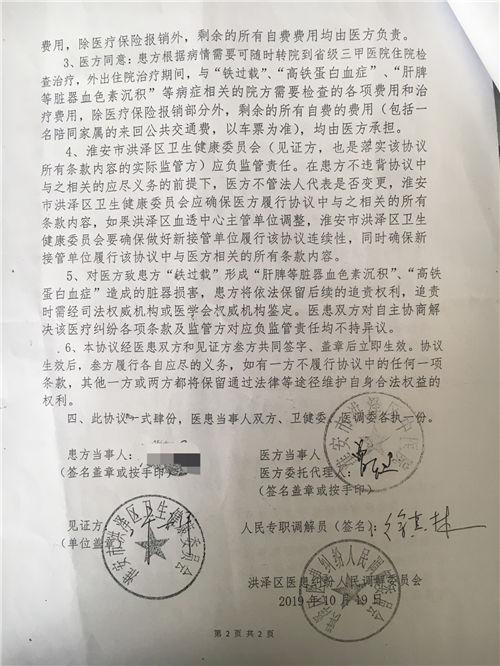 费用，除医疗保险报销外，剩余的所有自费费用均由医方负责。
3、医方同意：患方根据病情需要可随时转院到省级三甲医院住院检
查治疗，外出住院治疗期间，与“铁过载”、“高铁蛋白血症”、“肝脾
等脏器血色素沉积”等病症相关的院方需要检查的各项费用和治
疗费用，除医疗保险报销部分外，剩余的所有自费的费用（包括一
名陪同家属的来回公共交通费，以车票为准），均由医方承担。
4、淮安市洪泽区卫生健康委员会（见证方，也是落实该协议
所有条款内容的实际监管方）应负监管责任。在患方不违背协议中
与之相关的应尽义务的前提下，医方不管法人代表是否变更，淮安
市洪泽区卫生健康委员会应确保医方履行协议中与之相关的所有
条款内容，如果洪泽区血透中心主管单位调整，淮安市洪泽区卫生
健康委员会要确保做好新接管单位履行该协议连续性，同时确保新
接管单位履行该协议中与医方相关的所有条款内容。
5、对医方致患方“铁过载”形成“肝脾等脏器血色素沉积”、“高铁
蛋白血症”造成的脏器损害，患方将依法保留后续的追责权利，追责
时需经司法权威机构或医学会权威机构鉴定。医患双方对自主协商解
决该医疗纠纷各项条款及监管方对应负责任均不持异议。
6、本协议经医患双方和见证方叁方共同签字、盖章后立即生效。协议
生效后，叁方履行各自应尽的义务，如有一方不履行协议中的任何一项
条款，其他一方或两方都将保留通过法律等途径维护自身合法权益的
权利。
四、此协议一式肆份，医患当事人双方、卫健委、医调委各执一份。
患方当事人：
医方当事人
（签名盖章或按手印）
医方委托代理人：
（签名盖章或按手印）
见证方：
（单位盖章
淮安市洪泽区卫生健康委员会
人民专职调解员（签名）：
洪泽区医患纠纷人民调解委员会
2019年10月19日
第2页共2页